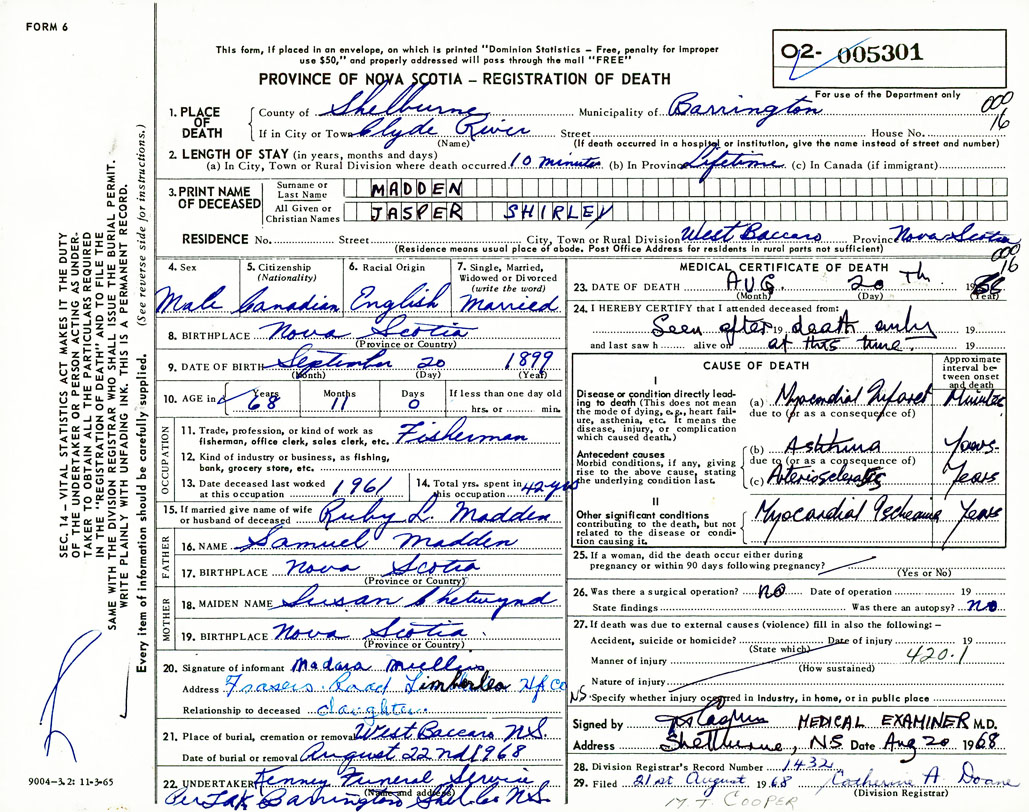 FORM 6
This form, if placed in an envelope, on which is printed "Dominion Statistics — Free, penalty for improper
use $50," and properly addressed will pass through the mail "FREE"
PROVINCE OF NOVA SCOTIA — REGISTRATION OF DEATH
02- 005301
For use of the Department only
000
16
1. PLACE OF DEATH
County of Shelburne Municipality of Barrington
If in City or Town Clyde River Street House No.
(Name) (If death occurred in a hospital or institution, give the name instead of street and number)
2. LENGTH OF STAY (in years, months and days)
(a) In City, Town or Rural Division where death occurred 10 minutes (b) In Province Lifetime (c) In Canada (if immigrant)
3. PRINT NAME OF DECEASED
Surname or Last Name MADDEN
All Given or Christian Names JASPER SHIRLEY
RESIDENCE No. Street City, Town or Rural Division West Baccaro Province Nova Scotia
(Residence means usual place of abode. Post Office Address for residents in rural parts not sufficient)
000
16
4. Sex
Male
5. Citizenship (Nationality)
Canadian
6. Racial Origin
English
7. Single, Married, Widowed or Divorced (write the word)
Married
8. BIRTHPLACE Nova Scotia
(Province or Country)
9. DATE OF BIRTH September 20 1899
(Month) (Day) (Year)
10. AGE in Years 68 Months 11 Days 0 If less than one day old
hrs. or min.
OCCUPATION
11. Trade, profession, or kind of work as fisherman, office clerk, sales clerk, etc. Fisherman
12. Kind of industry or business, as fishing, bank, grocery store, etc.
13. Date deceased last worked at this occupation 1961
14. Total yrs. spent in this occupation 42 yrs
15. If married give name of wife or husband of deceased Ruby L. Madden
FATHER
16. NAME Samuel Madden
17. BIRTHPLACE Nova Scotia
(Province or Country)
MOTHER
18. MAIDEN NAME Susan Shetwynd
19. BIRTHPLACE Nova Scotia
(Province or Country)
20. Signature of informant Mullins
Address Frasers Road Timberlea Hfx Co
Relationship to deceased daughter
21. Place of burial, cremation or removal West Baccaro N.S.
Date of burial or removal August 22nd 1968
22. UNDERTAKER Kenney Funeral Service
(Name and address)
Barrington Shel Co N.S.
MEDICAL CERTIFICATE OF DEATH
23. DATE OF DEATH AUG. 20 Th 19 68
(Month) (Day) (Year)
24. I HEREBY CERTIFY that I attended deceased from:
Seen after 19 death only 19
and last saw h alive on at this time. 19
CAUSE OF DEATH
Approximate interval between onset and death
I
Disease or condition directly leading to death (This does not mean the mode of dying, e.g., heart failure, asthenia, etc. It means the disease, injury, or complication which caused death.)
(a) Myocardial Infarct Minutes
due to (or as a consequence of)
Antecedent causes
Morbid conditions, if any, giving rise to the above cause, stating the underlying condition last.
(b) Asthma Years
due to (or as a consequence of)
(c) Arteriosclerosis Years
II
Other significant conditions
contributing to the death, but not related to the disease or condition causing it.
Myocardial Ischemia Years
25. If a woman, did the death occur either during
pregnancy or within 90 days following pregnancy?
(Yes or No)
26. Was there a surgical operation? NO Date of operation 19
State findings Was there an autopsy? no
27. If death was due to external causes (violence) fill in also the following:—
Accident, suicide or homicide? Date of injury 19
(State which)
420.1
Manner of injury
(How sustained)
Nature of injury
NS
Specify whether injury occurred in Industry, in home, or in public place
Signed by MEDICAL EXAMINER M.D.
Address Shelburne, NS Date Aug 20 1968
28. Division Registrar's Record Number 1432
29. Filed 21st August 1968 Catherine A. Doane
(Division Registrar)
M. T. COOPER
SEC. 14 – VITAL STATISTICS ACT MAKES IT THE DUTY
OF THE UNDERTAKER OR PERSON ACTING AS UNDER-
TAKER TO OBTAIN ALL THE PARTICULARS REQUIRED
IN THE "REGISTRATION OF DEATH" AND TO FILE THE
SAME WITH THE DIVISION REGISTRAR WHO SHALL ISSUE THE BURIAL PERMIT.
WRITE PLAINLY WITH UNFADING INK. THIS IS A PERMANENT RECORD.
Every item of information should be carefully supplied. (See reverse side for instructions.)
9004—3.2: 11-3-65